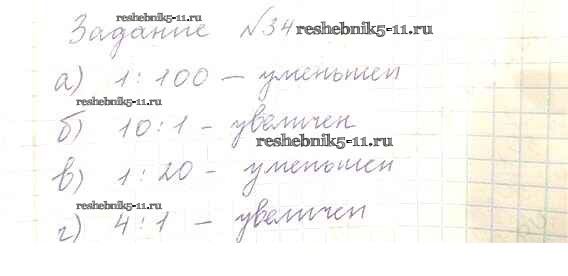 reshebnik5-11.ru
Задание №34 reshebnik5-11.ru
а) 1:100 – уменьшен
reshebnik5-11.ru
б) 10:1 – увеличен
reshebnik5-11.ru
в) 1:20 – уменьшен
reshebnik5-11.ru
г) 4:1 – увеличен